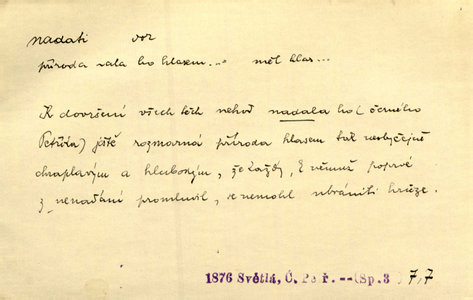 nadati vor
příroda nadala ho hlasem... měl hlas...
K dovršení všech těch nehod nadala ho (černého
Petříčka) ještě rozmarná příroda hlasem tak neobyčejně
chraplavým a hlubokým, že každý, k němuž poprvé
z nenadání promluvil, se nemohl ubrániti hrůze.
1876 Světlá, Č. Pe ř. -- (Sp.3 ) 7,7